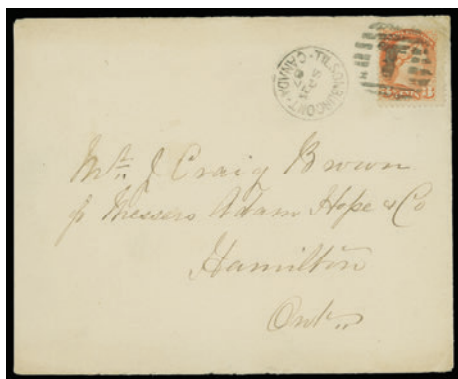 TILSONBURG ONT. CANADA
Mr. J Craig Brown
p Messers Adam Hope & Co
Hamilton
Ont.